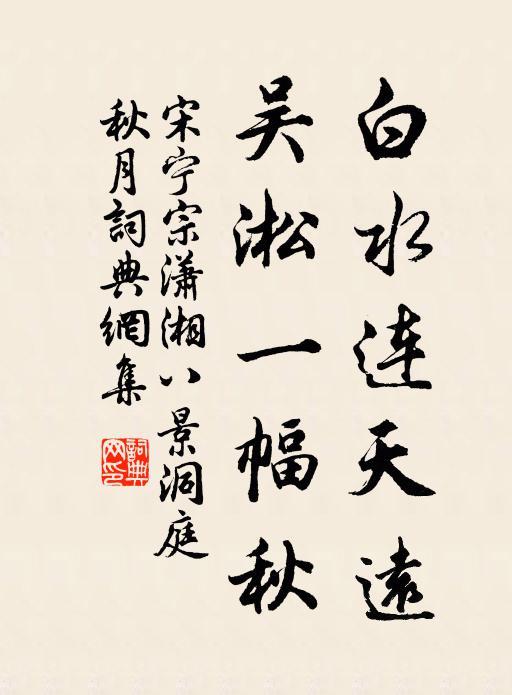 白水连天遠
吴淞一幅秋
宋宁宗瀟湘八景洞庭
秋月詞典網集
詞典網印